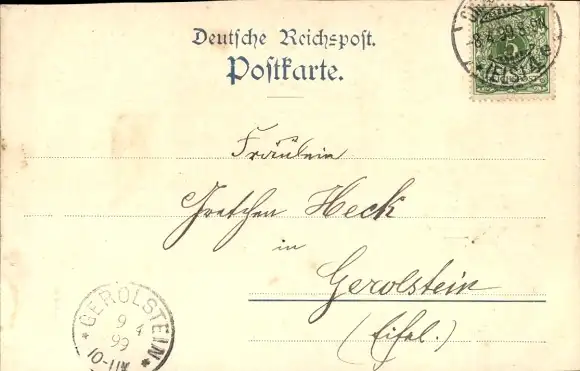 Deutsche Reichspost.
Postkarte.
-8.4.99.
5
(EIFEL)
Fräulein
Gretchen Heck
in
Gerolstein
(Eifel.)
* GEROLSTEIN *
9
4
99